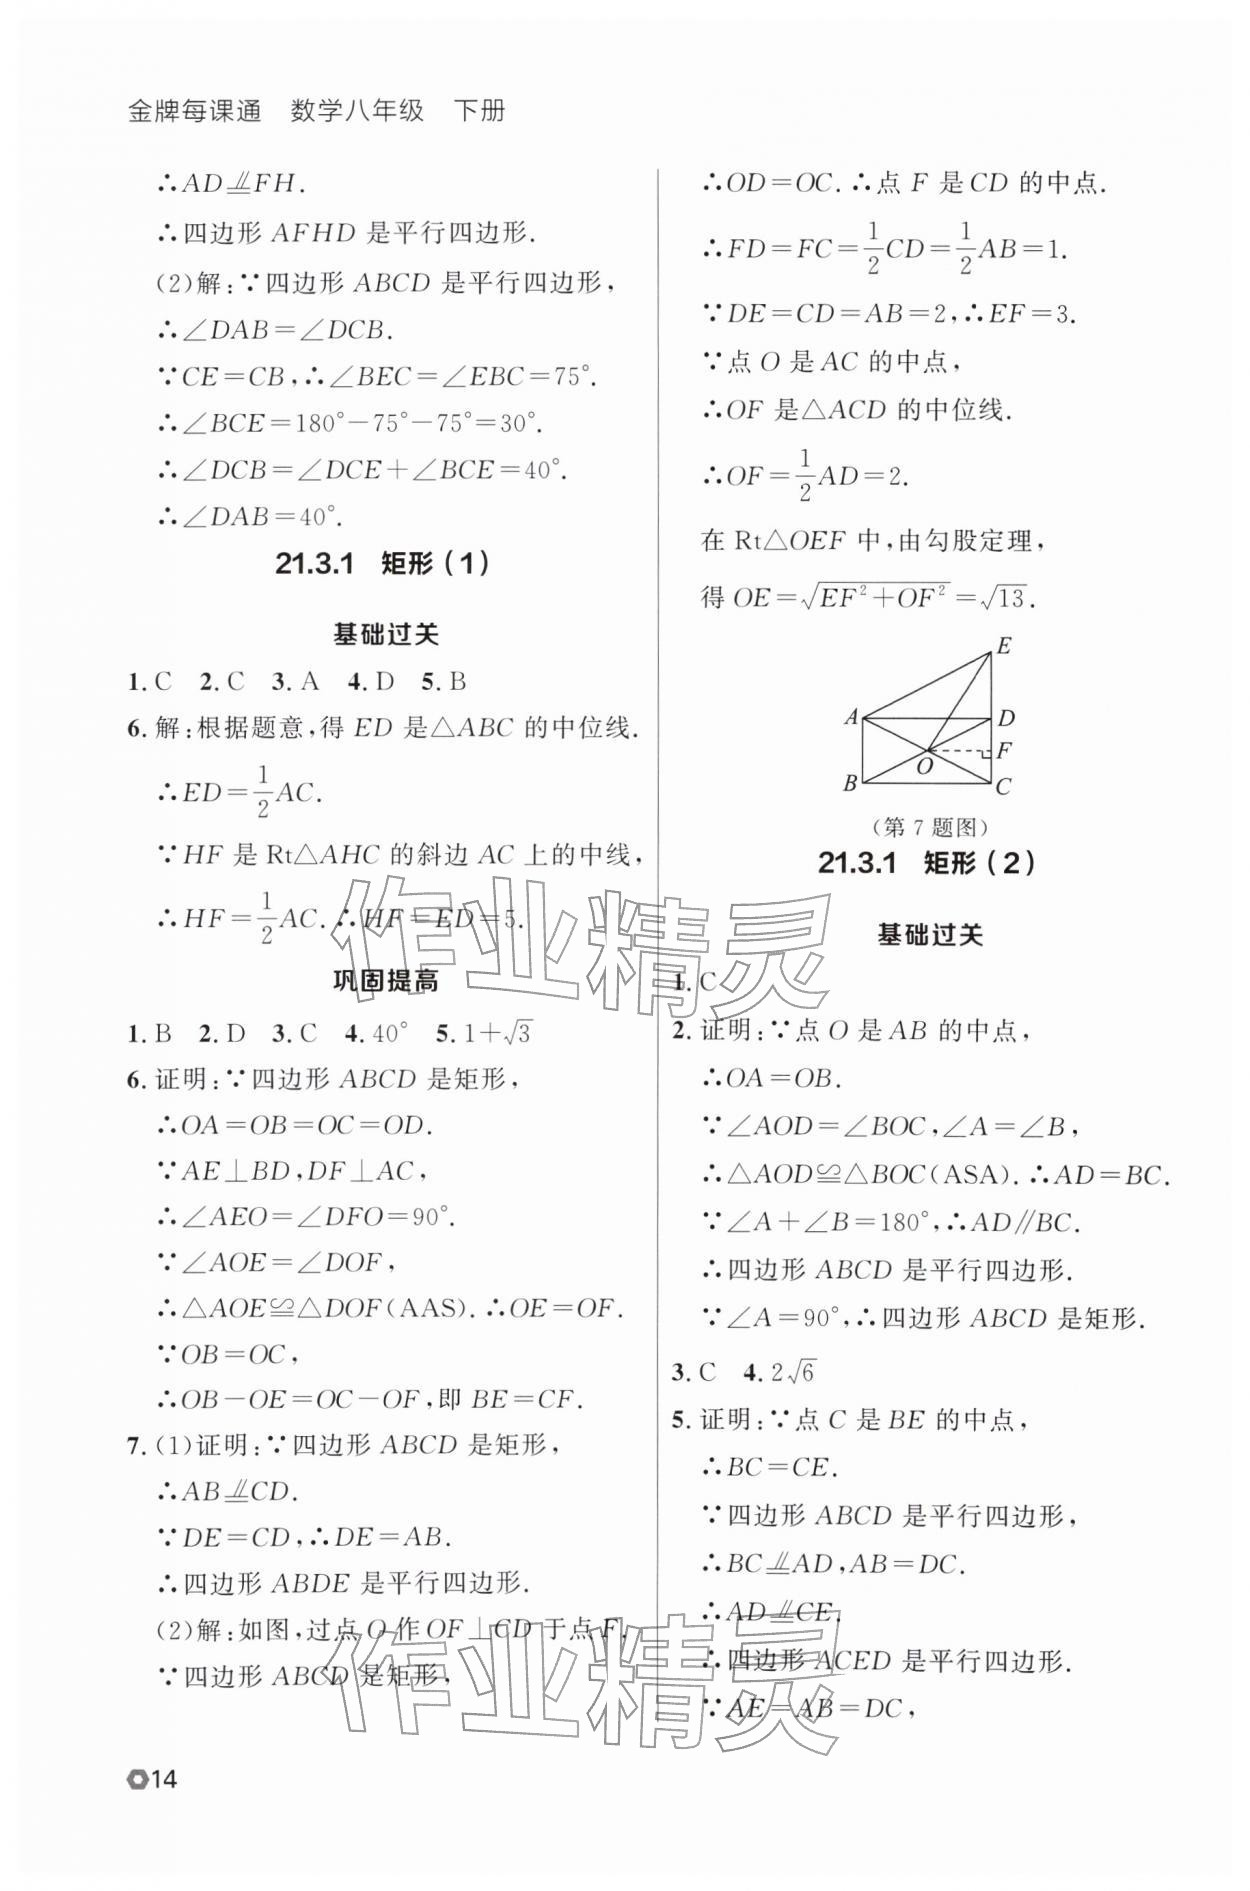 金牌每课通 数学八年级 下册
∴AD⫽FH.
∴四边形 AFHD 是平行四边形.
(2)解:∵四边形 ABCD 是平行四边形,
∴∠DAB=∠DCB.
∵CE=CB,∴∠BEC=∠EBC=75°.
∴∠BCE=180°-75°-75°=30°.
∴∠DCB=∠DCE+∠BCE=40°.
∴∠DAB=40°.
21.3.1 矩形(1)
基础过关
1.C 2.C 3.A 4.D 5.B
6.解:根据题意,得 ED 是△ABC 的中位线.
∴ED=1/2AC.
∵HF 是 Rt△AHC 的斜边 AC 上的中线,
∴HF=1/2AC.∴HF=ED=5.
巩固提高
1.B 2.D 3.C 4.40° 5.1+√3
6.证明:∵四边形 ABCD 是矩形,
∴OA=OB=OC=OD.
∵AE⊥BD,DF⊥AC,
∴∠AEO=∠DFO=90°.
∵∠AOE=∠DOF,
∴△AOE≌△DOF(AAS).∴OE=OF.
∵OB=OC,
∴OB-OE=OC-OF,即 BE=CF.
7.(1)证明:∵四边形 ABCD 是矩形,
∴AB⫽CD.
∵DE=CD,∴DE=AB.
∴四边形 ABDE 是平行四边形.
(2)解:如图,过点 O 作 OF⊥CD 于点 F.
∵四边形 ABCD 是矩形,
∴OD=OC.∴点 F 是 CD 的中点.
∴FD=FC=1/2CD=1/2AB=1.
∵DE=CD=AB=2,∴EF=3.
∵点 O 是 AC 的中点,
∴OF 是△ACD 的中位线.
∴OF=1/2AD=2.
在 Rt△OEF 中,由勾股定理,
得 OE=√(EF²+OF²)=√13.
E
A
D
F
O
B
C
(第 7 题图)
21.3.1 矩形(2)
基础过关
1.C
2.证明:∵点 O 是 AB 的中点,
∴OA=OB.
∵∠AOD=∠BOC,∠A=∠B,
∴△AOD≌△BOC(ASA).∴AD=BC.
∵∠A+∠B=180°,∴AD∥BC.
∴四边形 ABCD 是平行四边形.
∵∠A=90°,∴四边形 ABCD 是矩形.
3.C 4.2√6
5.证明:∵点 C 是 BE 的中点,
∴BC=CE.
∵四边形 ABCD 是平行四边形,
∴BC⫽AD,AB=DC.
∴AD⫽CE.
∴四边形 ACED 是平行四边形.
∵AE=AB=DC,
14
作业精灵
作业精灵